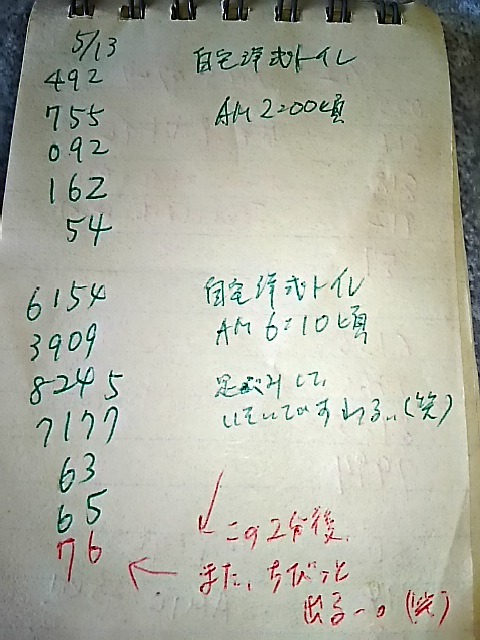 5/13
492 自宅洋式トイレ
755 AM 2:00頃
092
162
54
6154 自宅洋式トイレ
3909 AM 6:10頃
8245 足ぶみして、
7177 (笑)
63
65
76 この2分後、
また、ちびっと
出る〜。(笑)